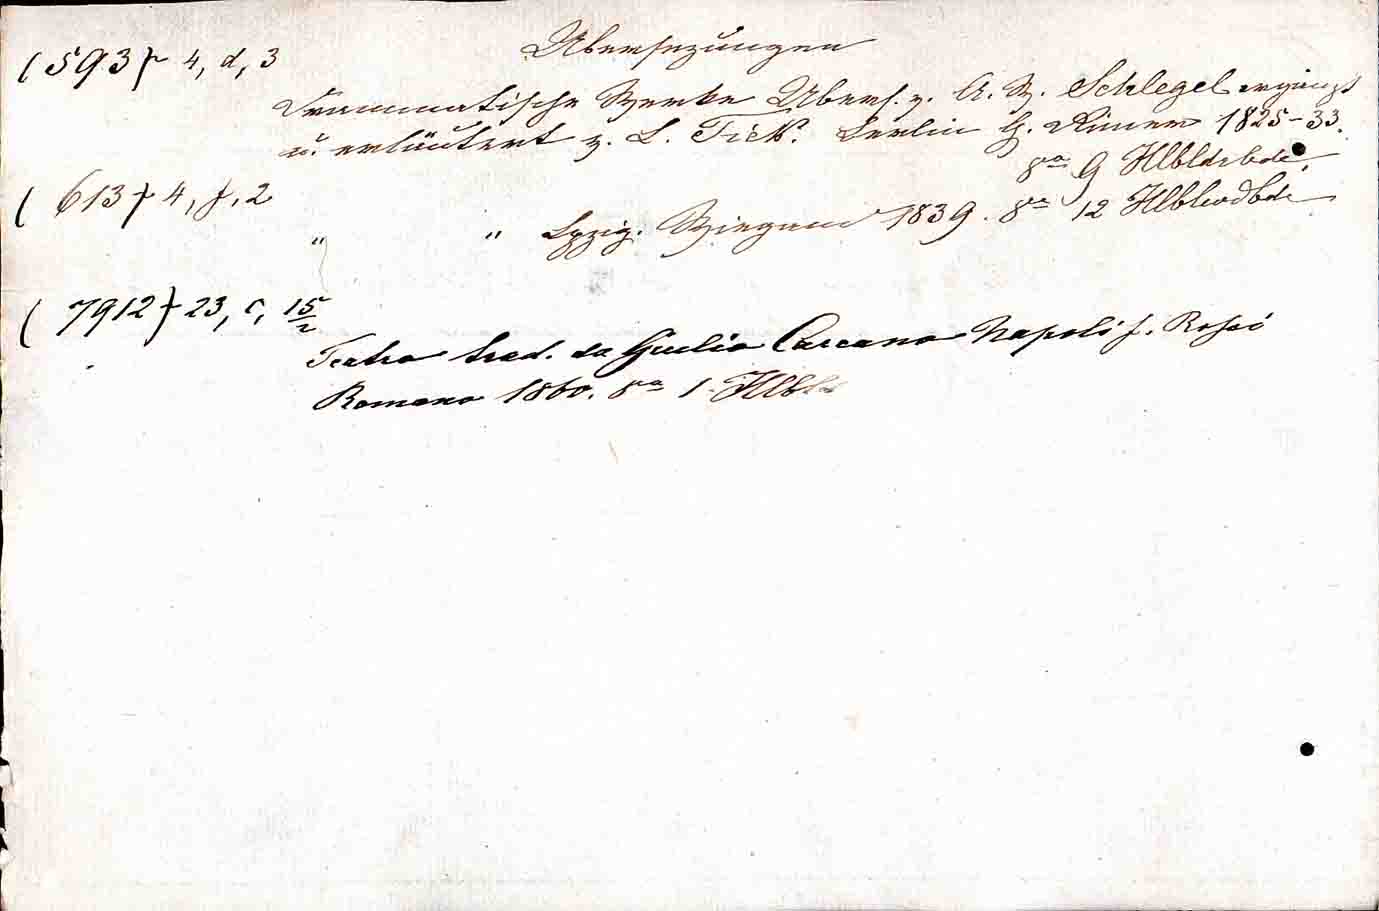 Übersezungen
(593) 4, d, 3
Drammatische Werke Übers. v. A. W. Schlegel ergänzt
u. erläutert v. L. Tieck. Berlin G. Reimer 1825-33.
8° 9 Hlbldrbde.
(613) 4, f, 2
" " Lpzig. Wiegand 1839. 8° 12 Hlblwdbde
(7912) 23, c, 15/2
Teatro trad. da Giulio Carcano Napoli f. Rossi
Romano 1860. 8° 1